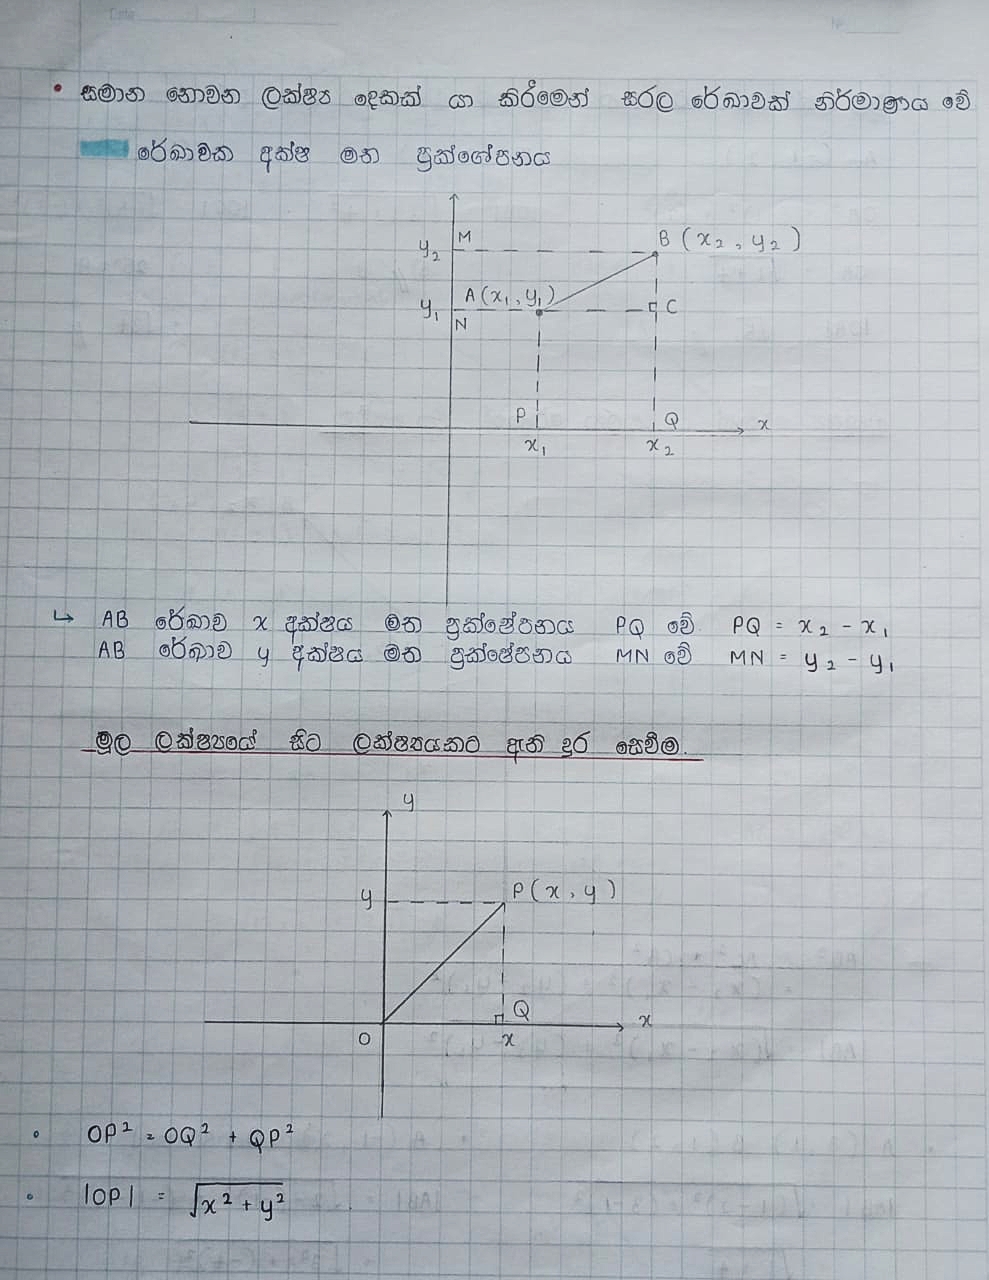 • සමාන නොවන ලක්ෂ්‍ය දෙකක් යා කිරීමෙන් සරල රේඛාවක් නිර්මාණය වේ
රේඛාවක අක්ෂ මත ප්‍රක්ශේපනය
y₂ M B (x₂, y₂)
y₁ A(x₁, y₁) C
N
P Q x
x₁ x₂
↳ AB රේඛාව x අක්ෂය මත ප්‍රක්ෂේපනය PQ වේ PQ = x₂ - x₁
AB රේඛාව y අක්ෂය මත ප්‍රක්ෂේපනය MN වේ MN = y₂ - y₁
මූල ලක්ෂ්‍යයේ සිට ලක්ෂ්‍යයකට ඇති දුර සෙවීම.
y
y P(x, y)
Q x
O x
• OP² = OQ² + QP²
• |OP| = √(x² + y²)